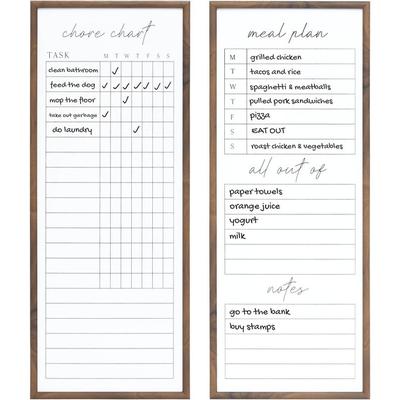 chore chart
TASK M T W T F S S
clean bathroom ✓
feed the dog ✓ ✓ ✓ ✓ ✓ ✓ ✓
mop the floor ✓
take out garbage ✓
do laundry ✓
meal plan
M grilled chicken
T tacos and rice
W spaghetti & meatballs
T pulled pork sandwiches
F pizza
S EAT OUT
S roast chicken & vegetables
all out of
paper towels
orange juice
yogurt
milk
notes
go to the bank
buy stamps